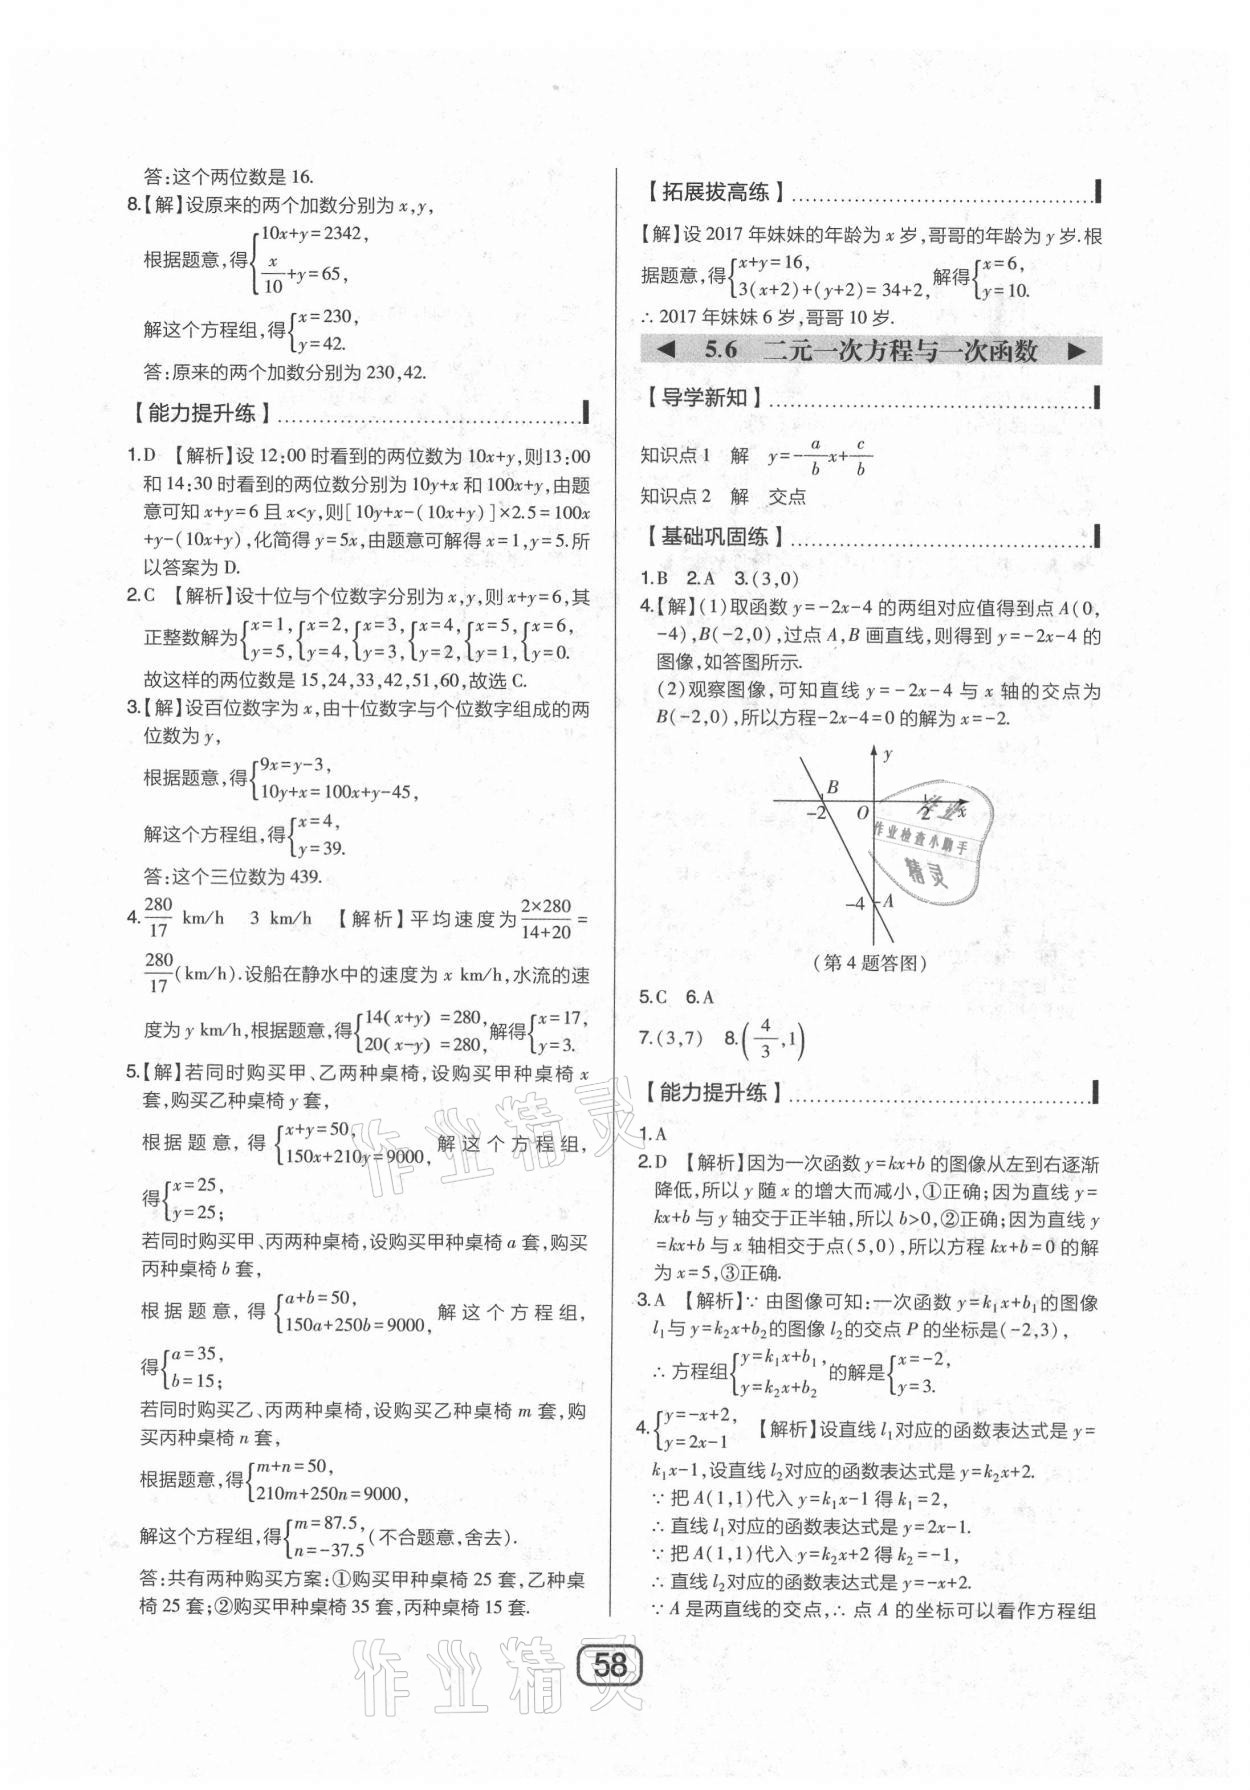 答:这个两位数是 16.
8.【解】设原来的两个加数分别为 x,y,
根据题意,得{10x+y=2342,
x/10+y=65,
解这个方程组,得{x=230,
y=42.
答:原来的两个加数分别为 230,42.
【能力提升练】
1.D 【解析】设 12:00 时看到的两位数为 10x+y,则13:00
和 14:30 时看到的两位数分别为 10y+x 和 100x+y,由题
意可知 x+y=6 且 x<y,则[10y+x-(10x+y)]×2.5=100x
+y-(10x+y),化简得 y=5x,由题意可解得 x=1,y=5.所
以答案为 D.
2.C 【解析】设十位与个位数字分别为 x,y,则 x+y=6,其
正整数解为{x=1,{x=2,{x=3,{x=4,{x=5,{x=6,
y=5, y=4, y=3, y=2, y=1, y=0.
故这样的两位数是 15,24,33,42,51,60,故选 C.
3.【解】设百位数字为 x,由十位数字与个位数字组成的两
位数为 y,
根据题意,得{9x=y-3,
10y+x=100x+y-45,
解这个方程组,得{x=4,
y=39.
答:这个三位数为 439.
4. 280/17 km/h 3 km/h 【解析】平均速度为 2×280/14+20 =
280/17(km/h).设船在静水中的速度为 x km/h,水流的速
度为 y km/h,根据题意,得{14(x+y)=280, 解得{x=17,
20(x-y)=280, y=3.
5.【解】若同时购买甲、乙两种桌椅,设购买甲种桌椅 x
套,购买乙种桌椅 y 套,
根据题意,得{x+y=50, 解这个方程组,
150x+210y=9000,
得{x=25,
y=25;
若同时购买甲、丙两种桌椅,设购买甲种桌椅 a 套,购买
丙种桌椅 b 套,
根据题意,得{a+b=50, 解这个方程组,
150a+250b=9000,
得{a=35,
b=15;
若同时购买乙、丙两种桌椅,设购买乙种桌椅 m 套,购
买丙种桌椅 n 套,
根据题意,得{m+n=50,
210m+250n=9000,
解这个方程组,得{m=87.5, (不合题意,舍去).
n=-37.5
答:共有两种购买方案:①购买甲种桌椅 25 套,乙种桌
椅 25 套;②购买甲种桌椅 35 套,丙种桌椅 15 套.
【拓展拔高练】
【解】设 2017 年妹妹的年龄为 x 岁,哥哥的年龄为 y 岁.根
据题意,得{x+y=16, 解得{x=6,
3(x+2)+(y+2)=34+2, y=10.
∴ 2017 年妹妹 6 岁,哥哥 10 岁.
◀ 5.6 二元一次方程与一次函数 ▶
【导学新知】
知识点 1 解 y=-a/b x+c/b
知识点 2 解 交点
【基础巩固练】
1.B 2.A 3.(3,0)
4.【解】(1)取函数 y=-2x-4 的两组对应值得到点 A(0,
-4),B(-2,0),过点 A,B 画直线,则得到 y=-2x-4 的
图像,如答图所示.
(2)观察图像,可知直线 y=-2x-4 与 x 轴的交点为
B(-2,0),所以方程-2x-4=0 的解为 x=-2.
y
B
-2 O 2 x
作业
作业检查小助手
精灵
-4 A
(第 4 题答图)
5.C 6.A
7.(3,7) 8.(4/3,1)
【能力提升练】
1.A
2.D 【解析】因为一次函数 y=kx+b 的图像从左到右逐渐
降低,所以 y 随 x 的增大而减小,①正确;因为直线 y=
kx+b 与 y 轴交于正半轴,所以 b>0,②正确;因为直线 y
=kx+b 与 x 轴相交于点(5,0),所以方程 kx+b=0 的解
为 x=5,③正确.
3.A 【解析】∵ 由图像可知:一次函数 y=k₁x+b₁的图像
l₁与 y=k₂x+b₂的图像 l₂的交点 P 的坐标是(-2,3),
∴ 方程组{y=k₁x+b₁, 的解是{x=-2,
y=k₂x+b₂ y=3.
4.{y=-x+2, 【解析】设直线 l₁对应的函数表达式是 y=
y=2x-1
k₁x-1,设直线 l₂对应的函数表达式是 y=k₂x+2.
∵ 把 A(1,1)代入 y=k₁x-1 得 k₁=2,
∴ 直线 l₁对应的函数表达式是 y=2x-1.
∵ 把 A(1,1)代入 y=k₂x+2 得 k₂=-1,
∴ 直线 l₂对应的函数表达式是 y=-x+2.
∵ A 是两直线的交点,∴ 点 A 的坐标可以看作方程组
作业精灵
作业精灵
58